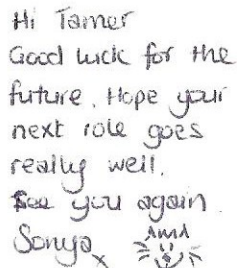 Hi Tamer
Good luck for the
future. Hope your
next role goes
really well.
See you again
Sonya x